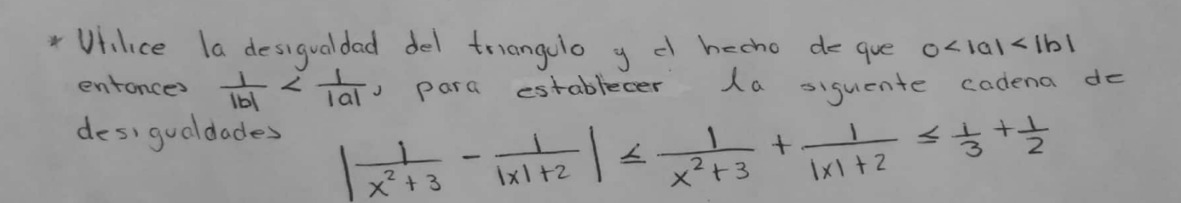 * Utilice la desigualdad del triangulo y el hecho de que 0<|a|<|b|
entonces 1/|b| < 1/|a|, para establecer la siguiente cadena de
desigualdades
|1/(x²+3) - 1/(|x|+2)| ≤ 1/(x²+3) + 1/(|x|+2) ≤ 1/3 + 1/2